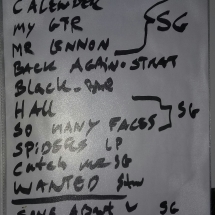 CALENDER
MY GTR
MR LENNON
SG
BACK AGAIN STRAT
BLACK
HALL
SO MANY FACES
SG
SPIDERS LP
CATCH ME SG
WANTED
SONG ABOUT U SG